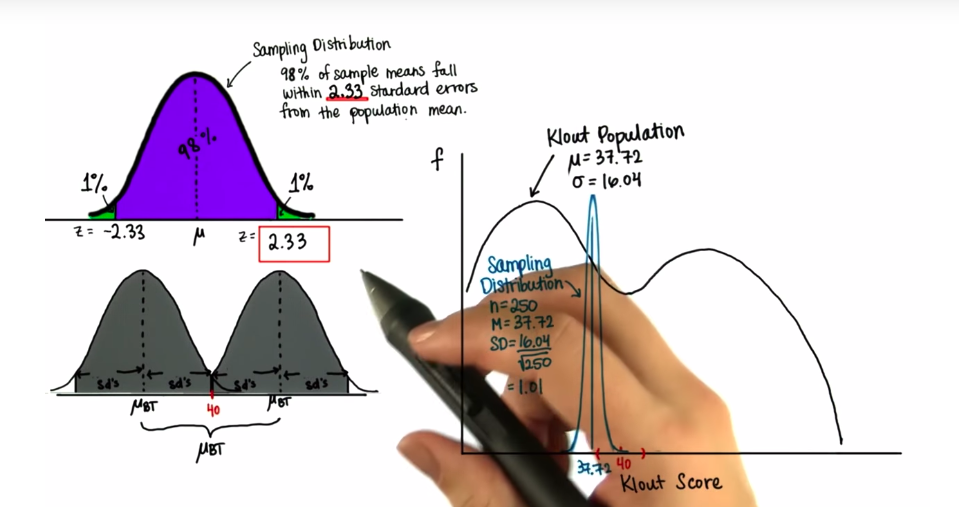 Sampling Distribution
98% of sample means fall
within 2.33 standard errors
from the population mean.
98%
1%
1%
z = -2.33
μ
z = 2.33
sd's
sd's
sd's
sd's
μBT
40
μBT
μBT
f
Klout Population
μ = 37.72
σ = 16.04
Sampling
Distribution
n = 250
M = 37.72
SD = 16.04
√250
= 1.01
37.72
40
Klout Score